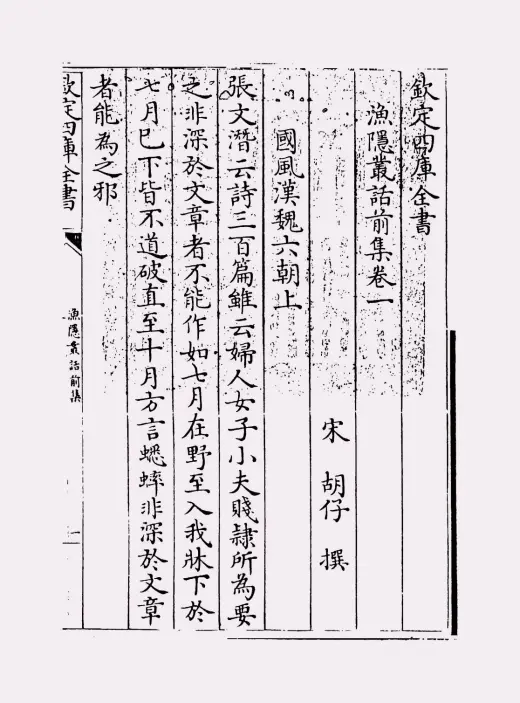 欽定四庫全書
漁隱叢話前集卷一
宋 胡仔 撰
國風漢魏六朝上
張文潛云詩三百篇雖云婦人女子小夫賤隷所為要
之非深於文章者不能作如七月在野至入我牀下於
七月已下皆不道破直至十月方言蟋蟀非深於文章
者能為之邪
欽定四庫全書
漁隱叢話前集
一